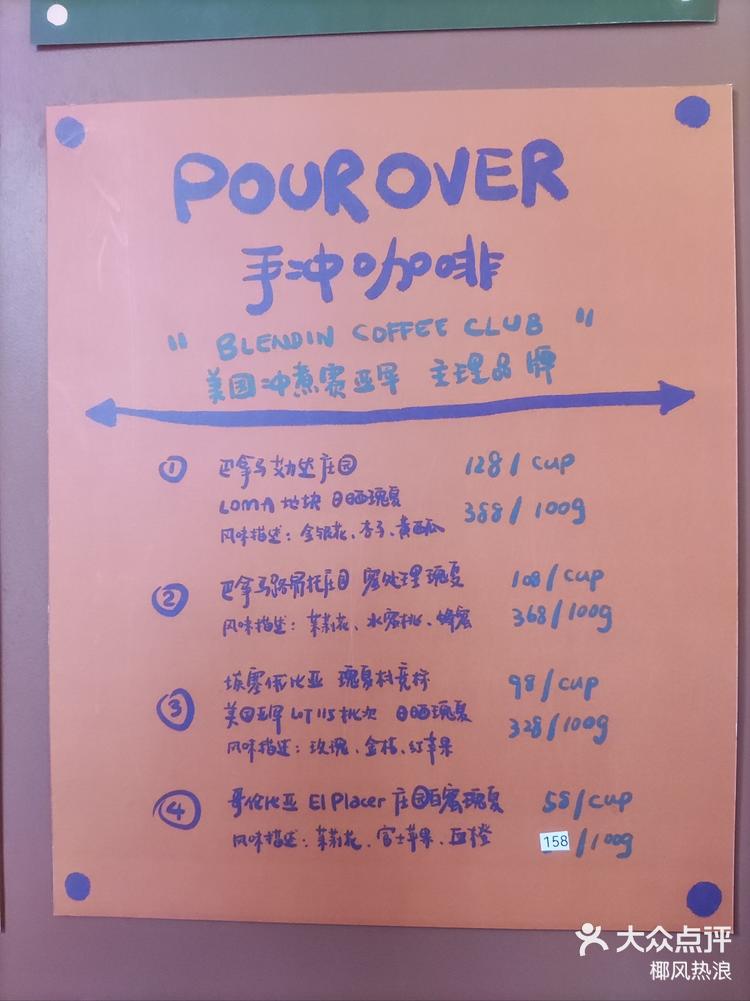 POUR OVER
手冲咖啡
" BLENDIN COFFEE CLUB "
美国冲煮赛亚军 主理品牌
① 巴拿马艾力达庄园 128/cup
LOMA 地块 日晒瑰夏 388/100g
风味描述：金银花、杏子、黄西瓜
② 巴拿马路易托庄园 蜜处理瑰夏 108/cup
风味描述：茉莉花、水蜜桃、蜂蜜 368/100g
③ 埃塞俄比亚 瑰夏村竞标 98/cup
美国亚军 LOT 115 批次 日晒瑰夏 328/100g
风味描述：玫瑰、金桔、红苹果
④ 哥伦比亚 El Placer 庄园白蜜瑰夏 58/cup
风味描述：茉莉花、富士苹果、血橙 158/100g
大众点评
椰风热浪